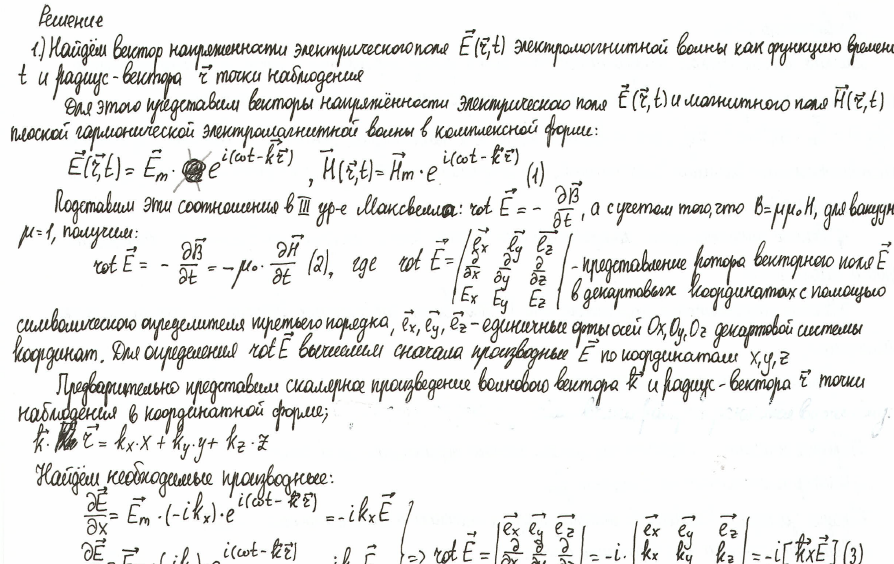 Решение
1.) Найдём вектор напряженности электрического поля E⃗(r⃗,t) электромагнитной волны как функцию времени
t и радиус-вектора r⃗ точки наблюдения
Для этого представим векторы напряжённости электрического поля E⃗(r⃗,t) и магнитного поля H⃗(r⃗,t)
плоской гармонической электромагнитной волны в комплексной форме:
E⃗(r⃗,t) = E⃗m · e^i(ωt-k⃗r⃗), H⃗(r⃗,t) = H⃗m · e^i(ωt-k⃗r⃗) (1)
Подставим эти соотношения в III ур-е Максвелла: rot E⃗ = - ∂B⃗/∂t, а с учетом того, что B=μμ₀H, для вакуума
μ=1, получим:
rot E⃗ = - ∂B⃗/∂t = -μ₀ · ∂H⃗/∂t (2), где rot E⃗ = | e⃗x e⃗y e⃗z ; ∂/∂x ∂/∂y ∂/∂z ; Ex Ey Ez | - представление ротора векторного поля E⃗
в декартовых координатах с помощью
символического определителя третьего порядка, e⃗x, e⃗y, e⃗z - единичные орты осей Ox, Oy, Oz декартовой системы
координат. Для определения rot E⃗ вычислим сначала производные E⃗ по координатам x, y, z
Предварительно представим скалярное произведение волнового вектора k⃗ и радиус-вектора r⃗ точки
наблюдения в координатной форме;
k⃗ · r⃗ = kx·x + ky·y + kz·z
Найдём необходимые производные:
∂E⃗/∂x = E⃗m · (-ikx) · e^i(ωt-k⃗r⃗) = -ikx E⃗
=> rot E⃗ = | e⃗x e⃗y e⃗z ; ∂ ∂ ∂ | = -i · | e⃗x e⃗y e⃗z ; kx ky kz | = -i[k⃗×E⃗] (3)